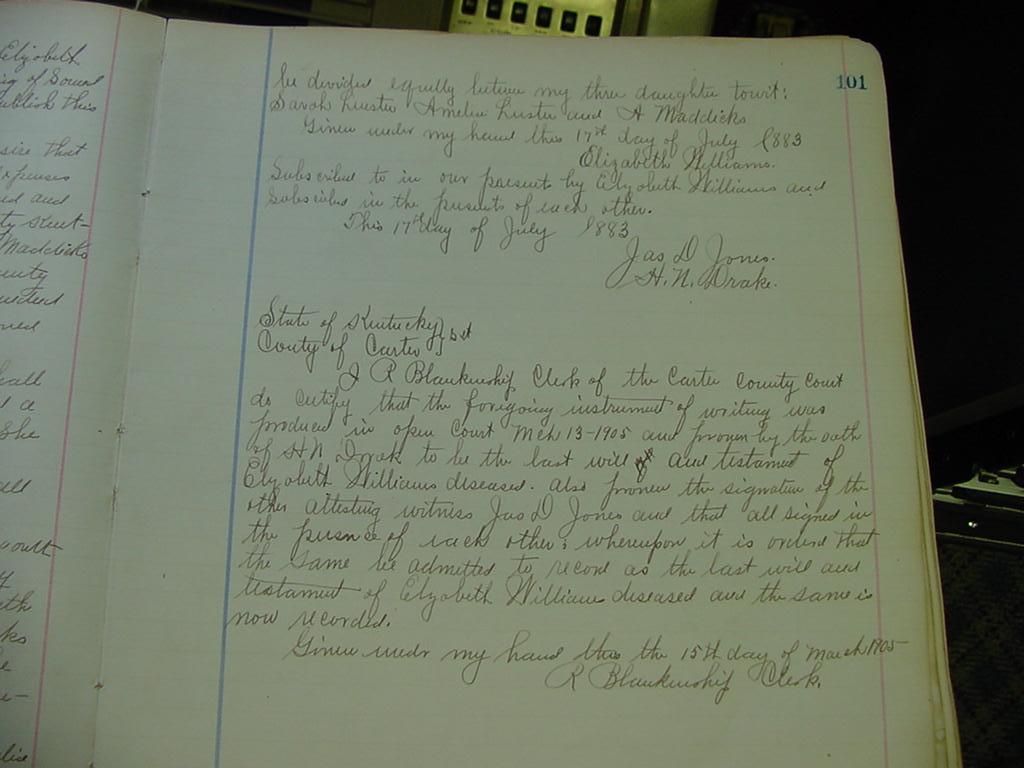 Elizabeth
ing of Sound
publish this
sire that
expenses
and
Maddicks
call
a
She
all
101
be devided equally between my three daughter towit:
Sarah Luster, Amelia Luster and A Maddicks
Given under my hand this 17th day of July 1883
Elizabeth Williams.
Subscribed to in our presents by Elizabeth Williams and
Subscribed in the presents of each other.
This 17th day of July 1883
Jas D Jones.
H. N. Drake.
State of Kentucky } sct
County of Carter }
I R Blankenship Clerk of the Carter County Court
do certify that the foregoing instrument of writing was
produced in open court Mch 13-1905 and proven by the oath
of H N Drake to be the last will and testament of
Elizabeth Williams diseased. Also proven the signature of the
other attesting witness Jas D Jones and that all signed in
the presence of each other; whereupon it is ordered that
the same be admitted to record as the last will and
testament of Elizabeth Williams diseased and the same is
now recorded.
Given under my hand this the 15th day of March 1905
R Blankenship Clerk.